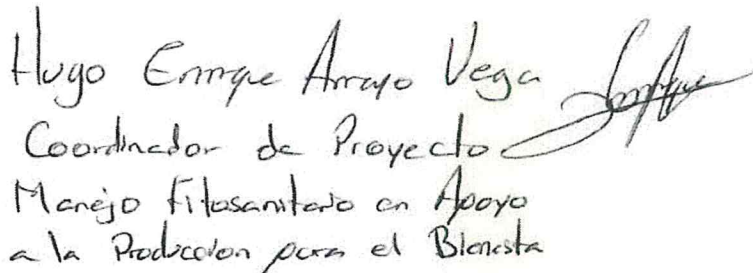 Hugo Enrique Arroyo Vega
Coordinador de Proyecto
Manejo Fitosanitario en Apoyo
a la Produccion para el Bienesta